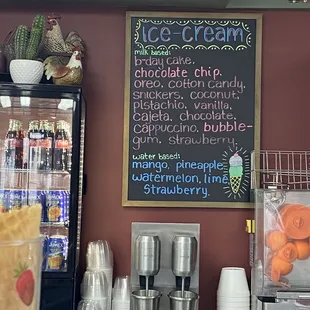 ice-cream
milk based:
b-day cake,
chocolate chip,
oreo, cotton candy,
snickers, coconut,
pistachio, vanilla,
cajeta, chocolate,
cappuccino, bubble-
gum, strawberry
water based:
mango, pineapple
watermelon, lime
Strawberry.